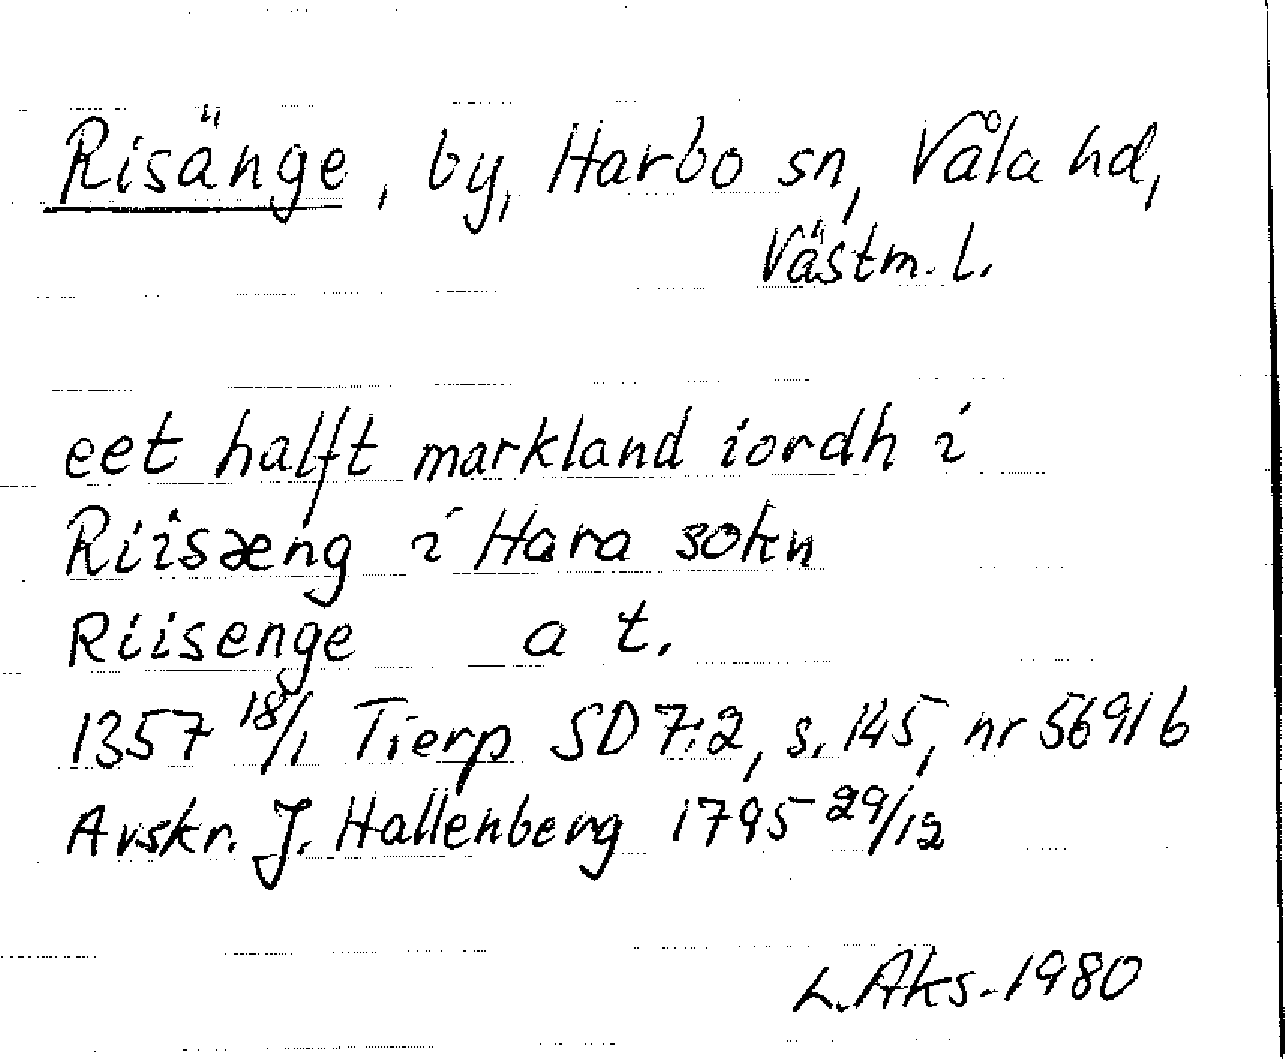 Risänge, by, Harbo sn, Våla hd,
Västm. l.
eet halft markland iordh i
Riisæng i Hara sokn
Riisenge a t.
1357 18/1 Tierp SD 7:2, s. 145, nr 5691 b
Avskr. J. Hallenberg 1795 29/12
L. Aks. 1980